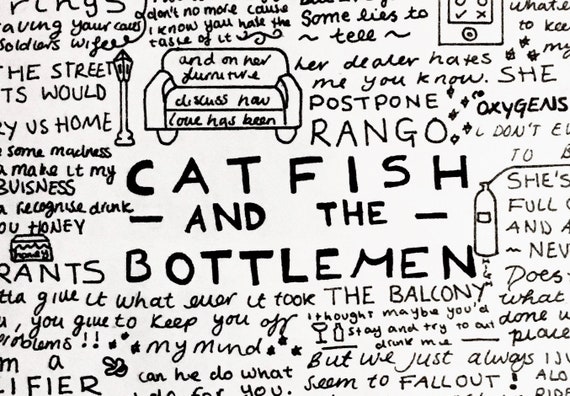 don't no more cause
i know you hate the
taste of it
Some lies to
~ tell ~
to keep
my
aving your cards
Soldiers wife
THE STREET
TS WOULD
RY US HOME
and on her
furniture
discuss how
love has been
her dealer hates
me you know. SHE
POSTPONE
RANGO
OXYGENS
i DON'T
TO
some madness
make it my
BUISNESS
recognise drink
OU HONEY
honey
RANTS
CATFISH
— AND THE —
BOTTLEMEN
SHE'S
FULL
AND
~ NEV
Does
what
done
place
tta give it what ever it took THE BALCONY
, you give to keep you off
problems!!
my mind
i thought maybe you'd
stay and try to out
drink me —
m a
LIFIER
can he do what
i do for you.
But we just always
seem to FALLOUT!
ALO
RIDE